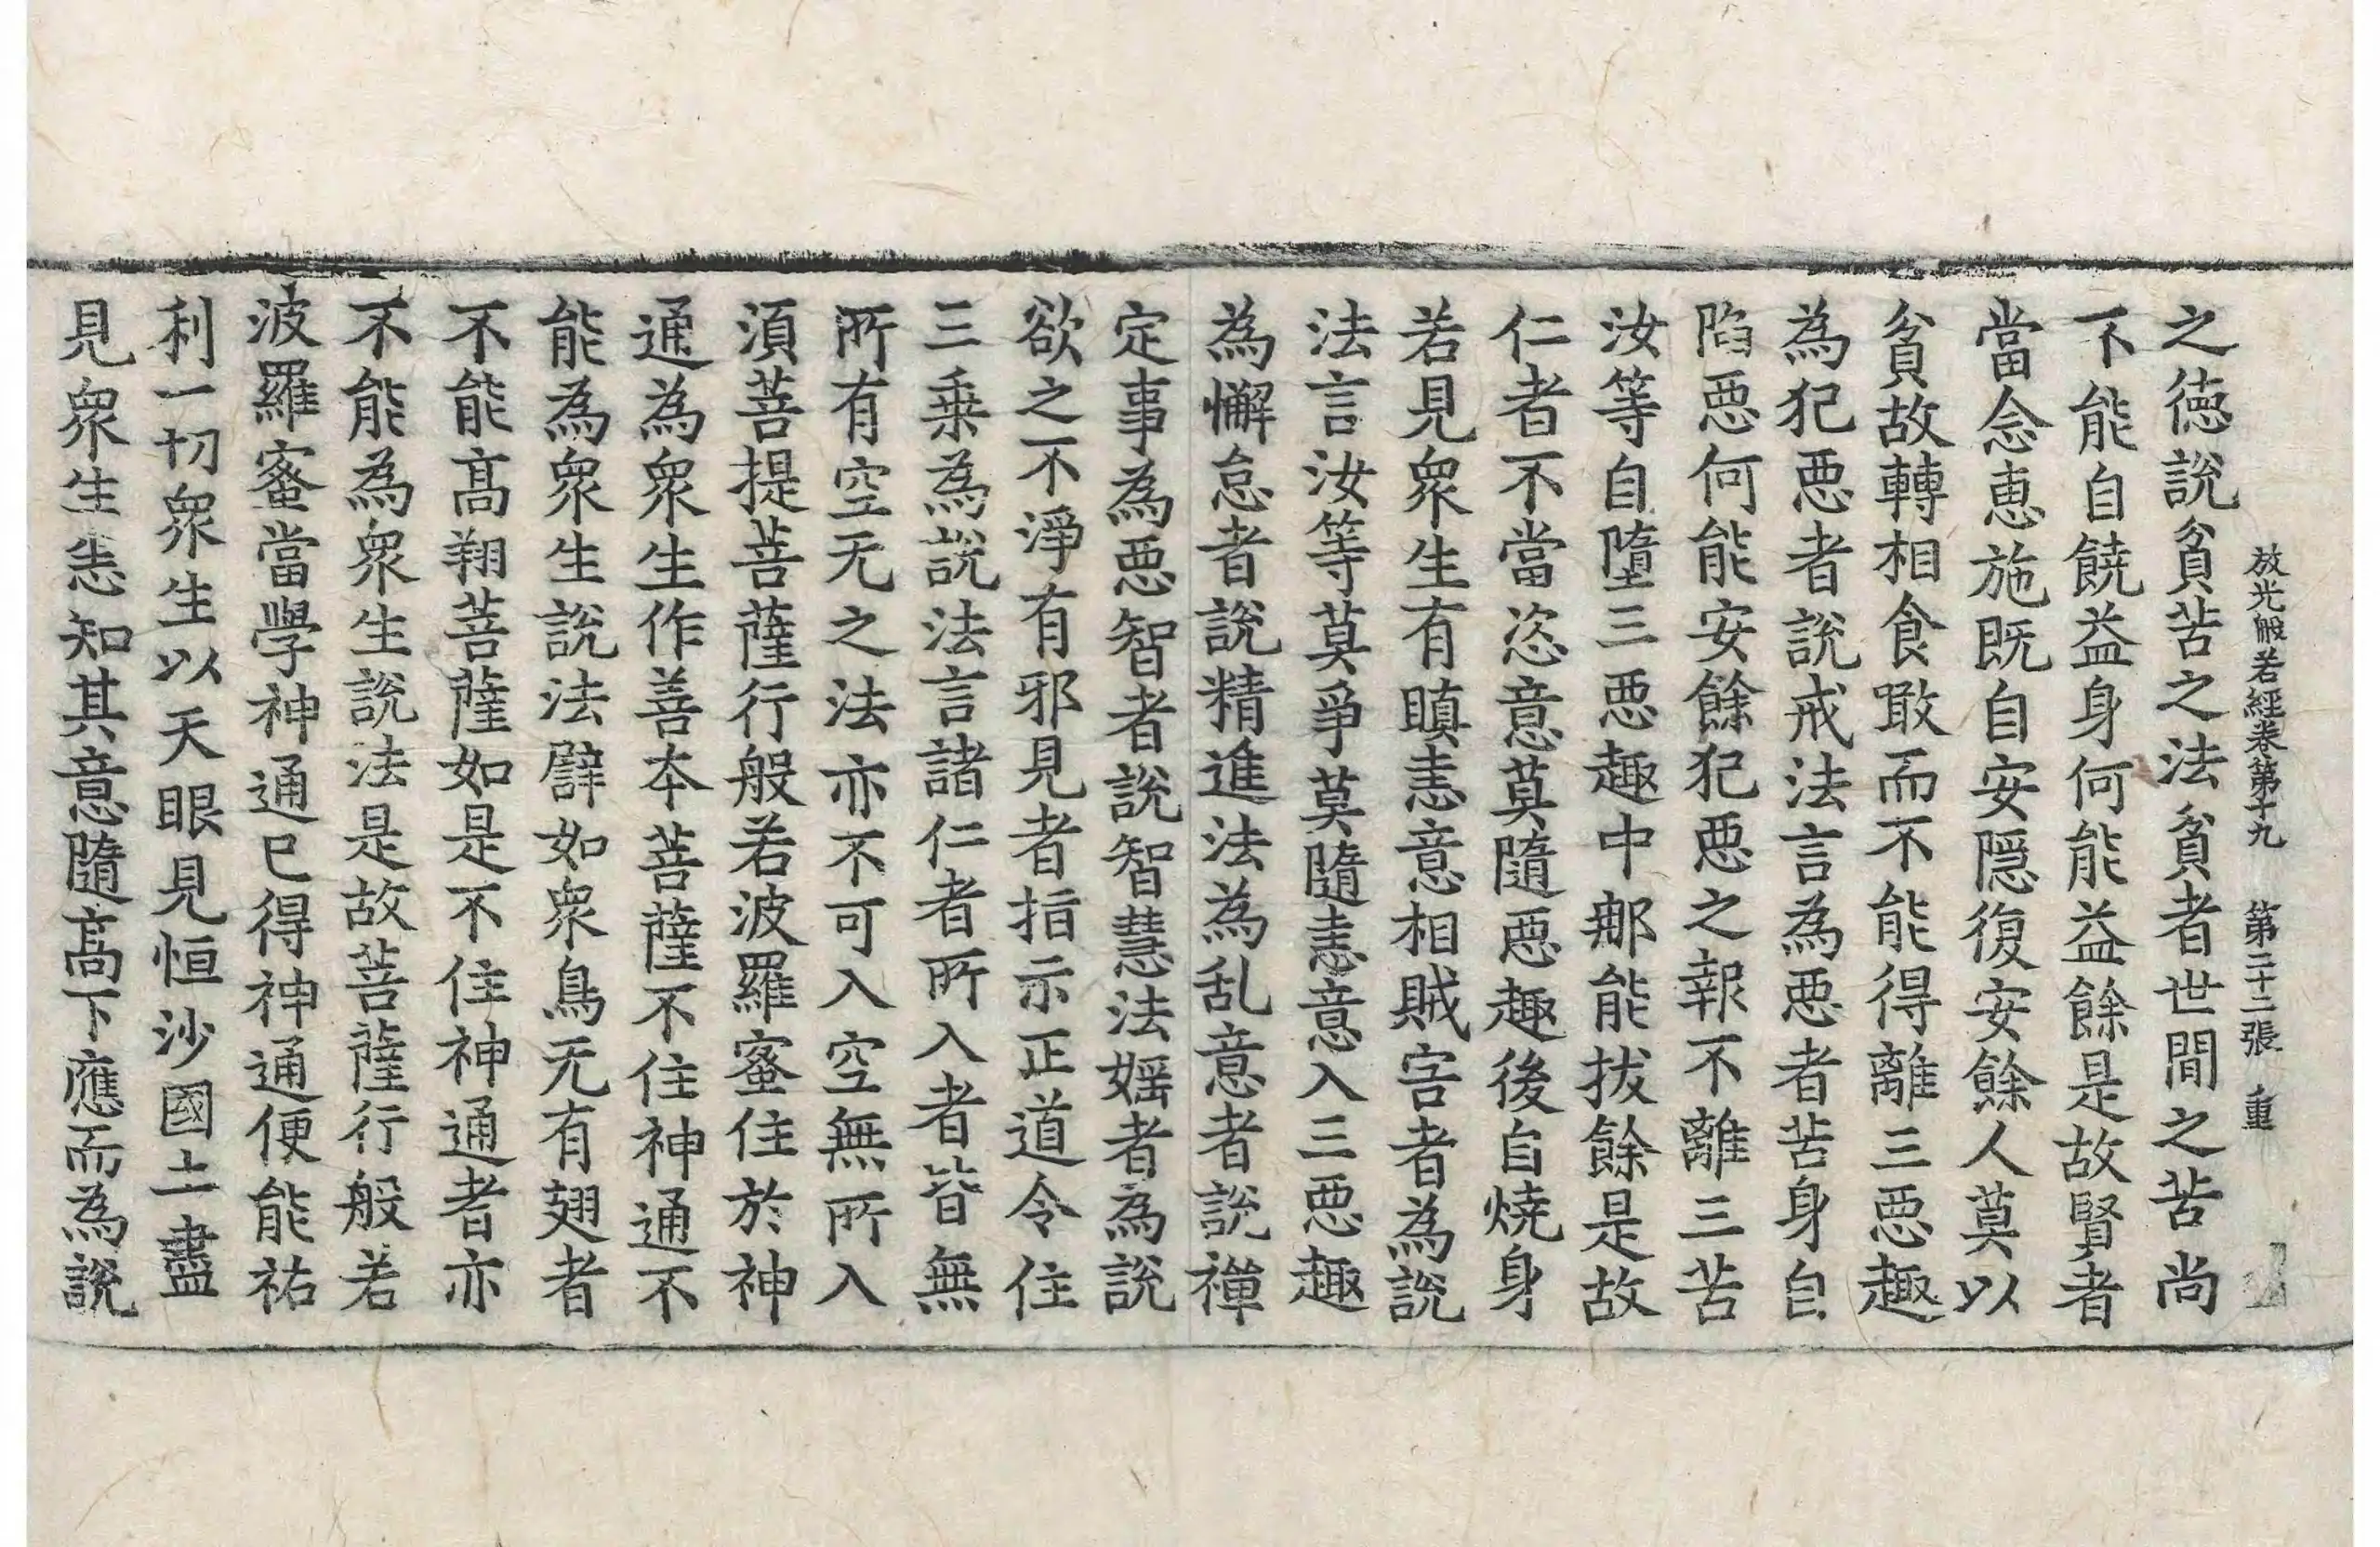 放光般若經卷第十九 第二十二張 重
之德說貧苦之法貧者世間之苦尚
不能自饒益身何能益餘是故賢者
當念恵施既自安隱復安餘人莫以
貧故轉相食噉而不能得離三惡趣
為犯惡者說戒法言為惡者苦身自
陷惡何能安餘犯惡之報不離三苦
汝等自墮三惡趣中那能拔餘是故
仁者不當恣意莫隨惡趣後自燒身
若見衆生有瞋恚意相賊害者為說
法言汝等莫爭莫隨恚意入三惡趣
為懈怠者說精進法為乱意者說禪
定事為惡智者說智慧法婬者為說
欲之不淨有邪見者指示正道令住
三乗為說法言諸仁者所入者皆無
所有空无之法亦不可入空無所入
須菩提菩薩行般若波羅蜜住於神
通為衆生作善本菩薩不住神通不
能為衆生說法譬如衆鳥无有翅者
不能高翔菩薩如是不住神通者亦
不能為衆生說法是故菩薩行般若
波羅蜜當學神通已得神通便能祐
利一切衆生以天眼見恒沙國土盡
見衆生悉知其意隨高下應而為說